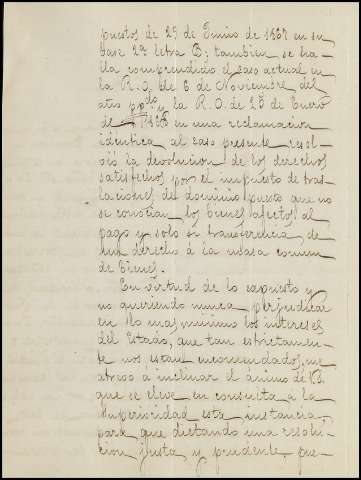 puestos de 29 de Junio de 1867 en su
base 2ª letra B; tambien se ha-
lla comprendido el caso actual en
la R. O. de 6 de Noviembre del
año ppdo. y la R. O. de 25 de Enero
de 1876 en una reclamacion
identica al caso presente resol-
vió la devolucion de los derechos
satisfechos por el impuesto de tras-
laciones de dominio puesto que no
se conocian los bienes afectos al
pago y solo se transferencia de
un derecho á la masa comun
de bienes.
En virtud de lo expuesto y
no queriendo nunca perjudicar
en lo mas minimo los intereses
del Estado, que tan estrictamen-
te nos estan encomendados, me
atrevo á inclinar el ánimo de V.
que se eleve en consulta a la
Superioridad esta instancia,
para que dictando una resolu-
cion justa y prudente, que-